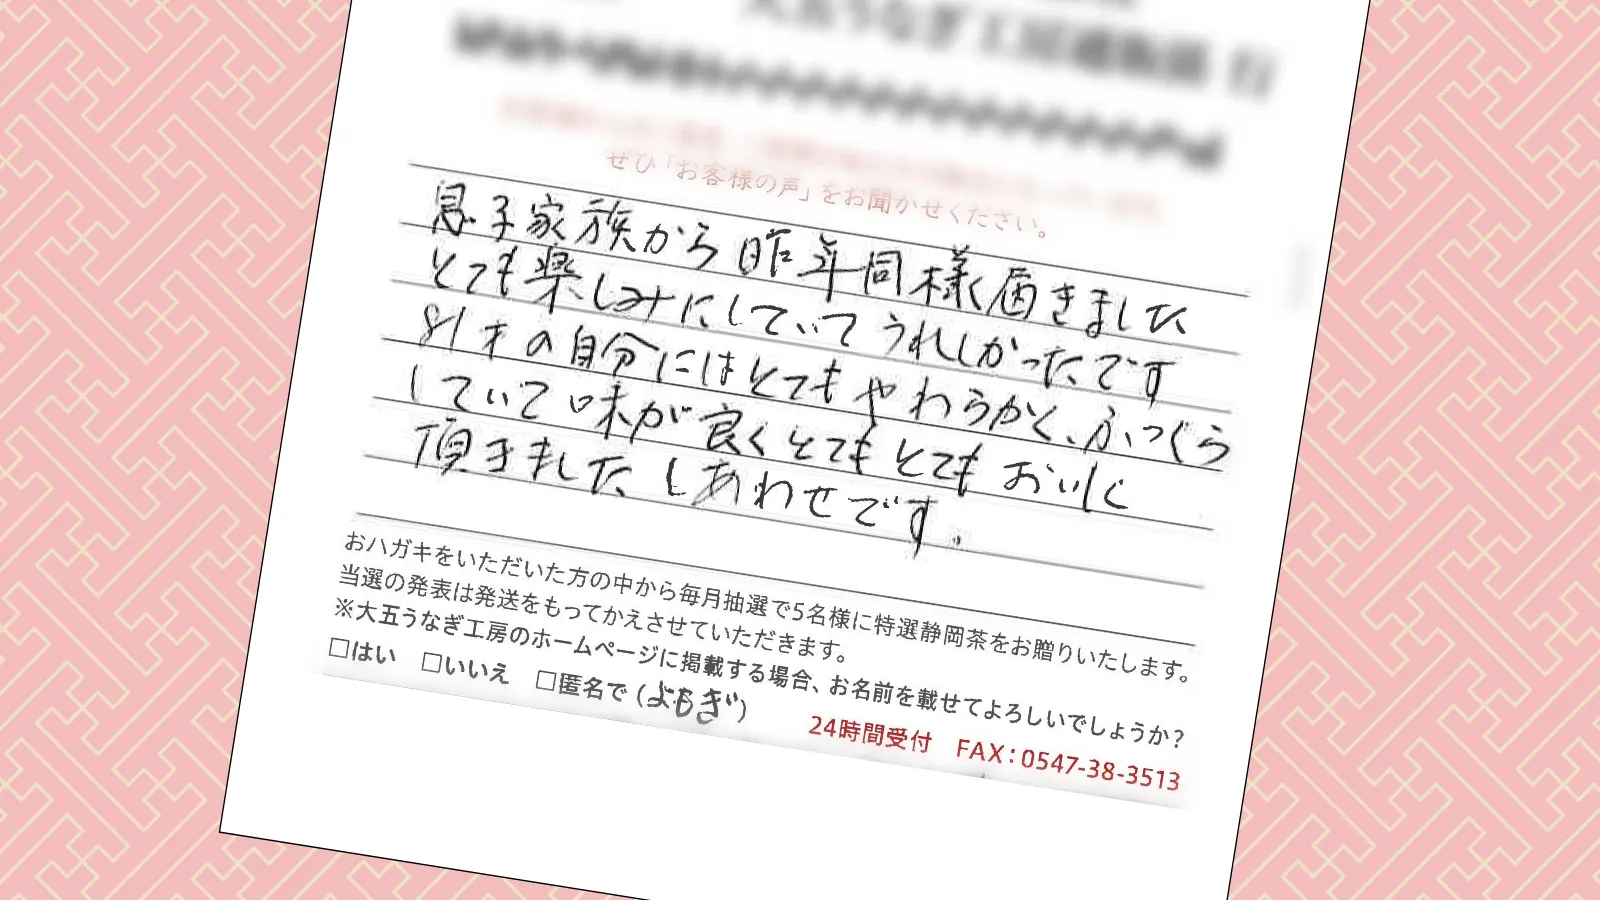 大五うなぎ工房通販係 行
ぜひ「お客様の声」をお聞かせください。
息子家族から昨年同様届きました
とても楽しみにしていてうれしかったです
81才の自分にはとてもやわらかく、ふっくら
していて味が良くとてもとてもおいしく
頂きました しあわせです。
おハガキをいただいた方の中から毎月抽選で5名様に特選静岡茶をお贈りいたします。
当選の発表は発送をもってかえさせていただきます。
※大五うなぎ工房のホームページに掲載する場合、お名前を載せてよろしいでしょうか？
□はい □いいえ □匿名で（よもぎ）
24時間受付 FAX：0547-38-3513